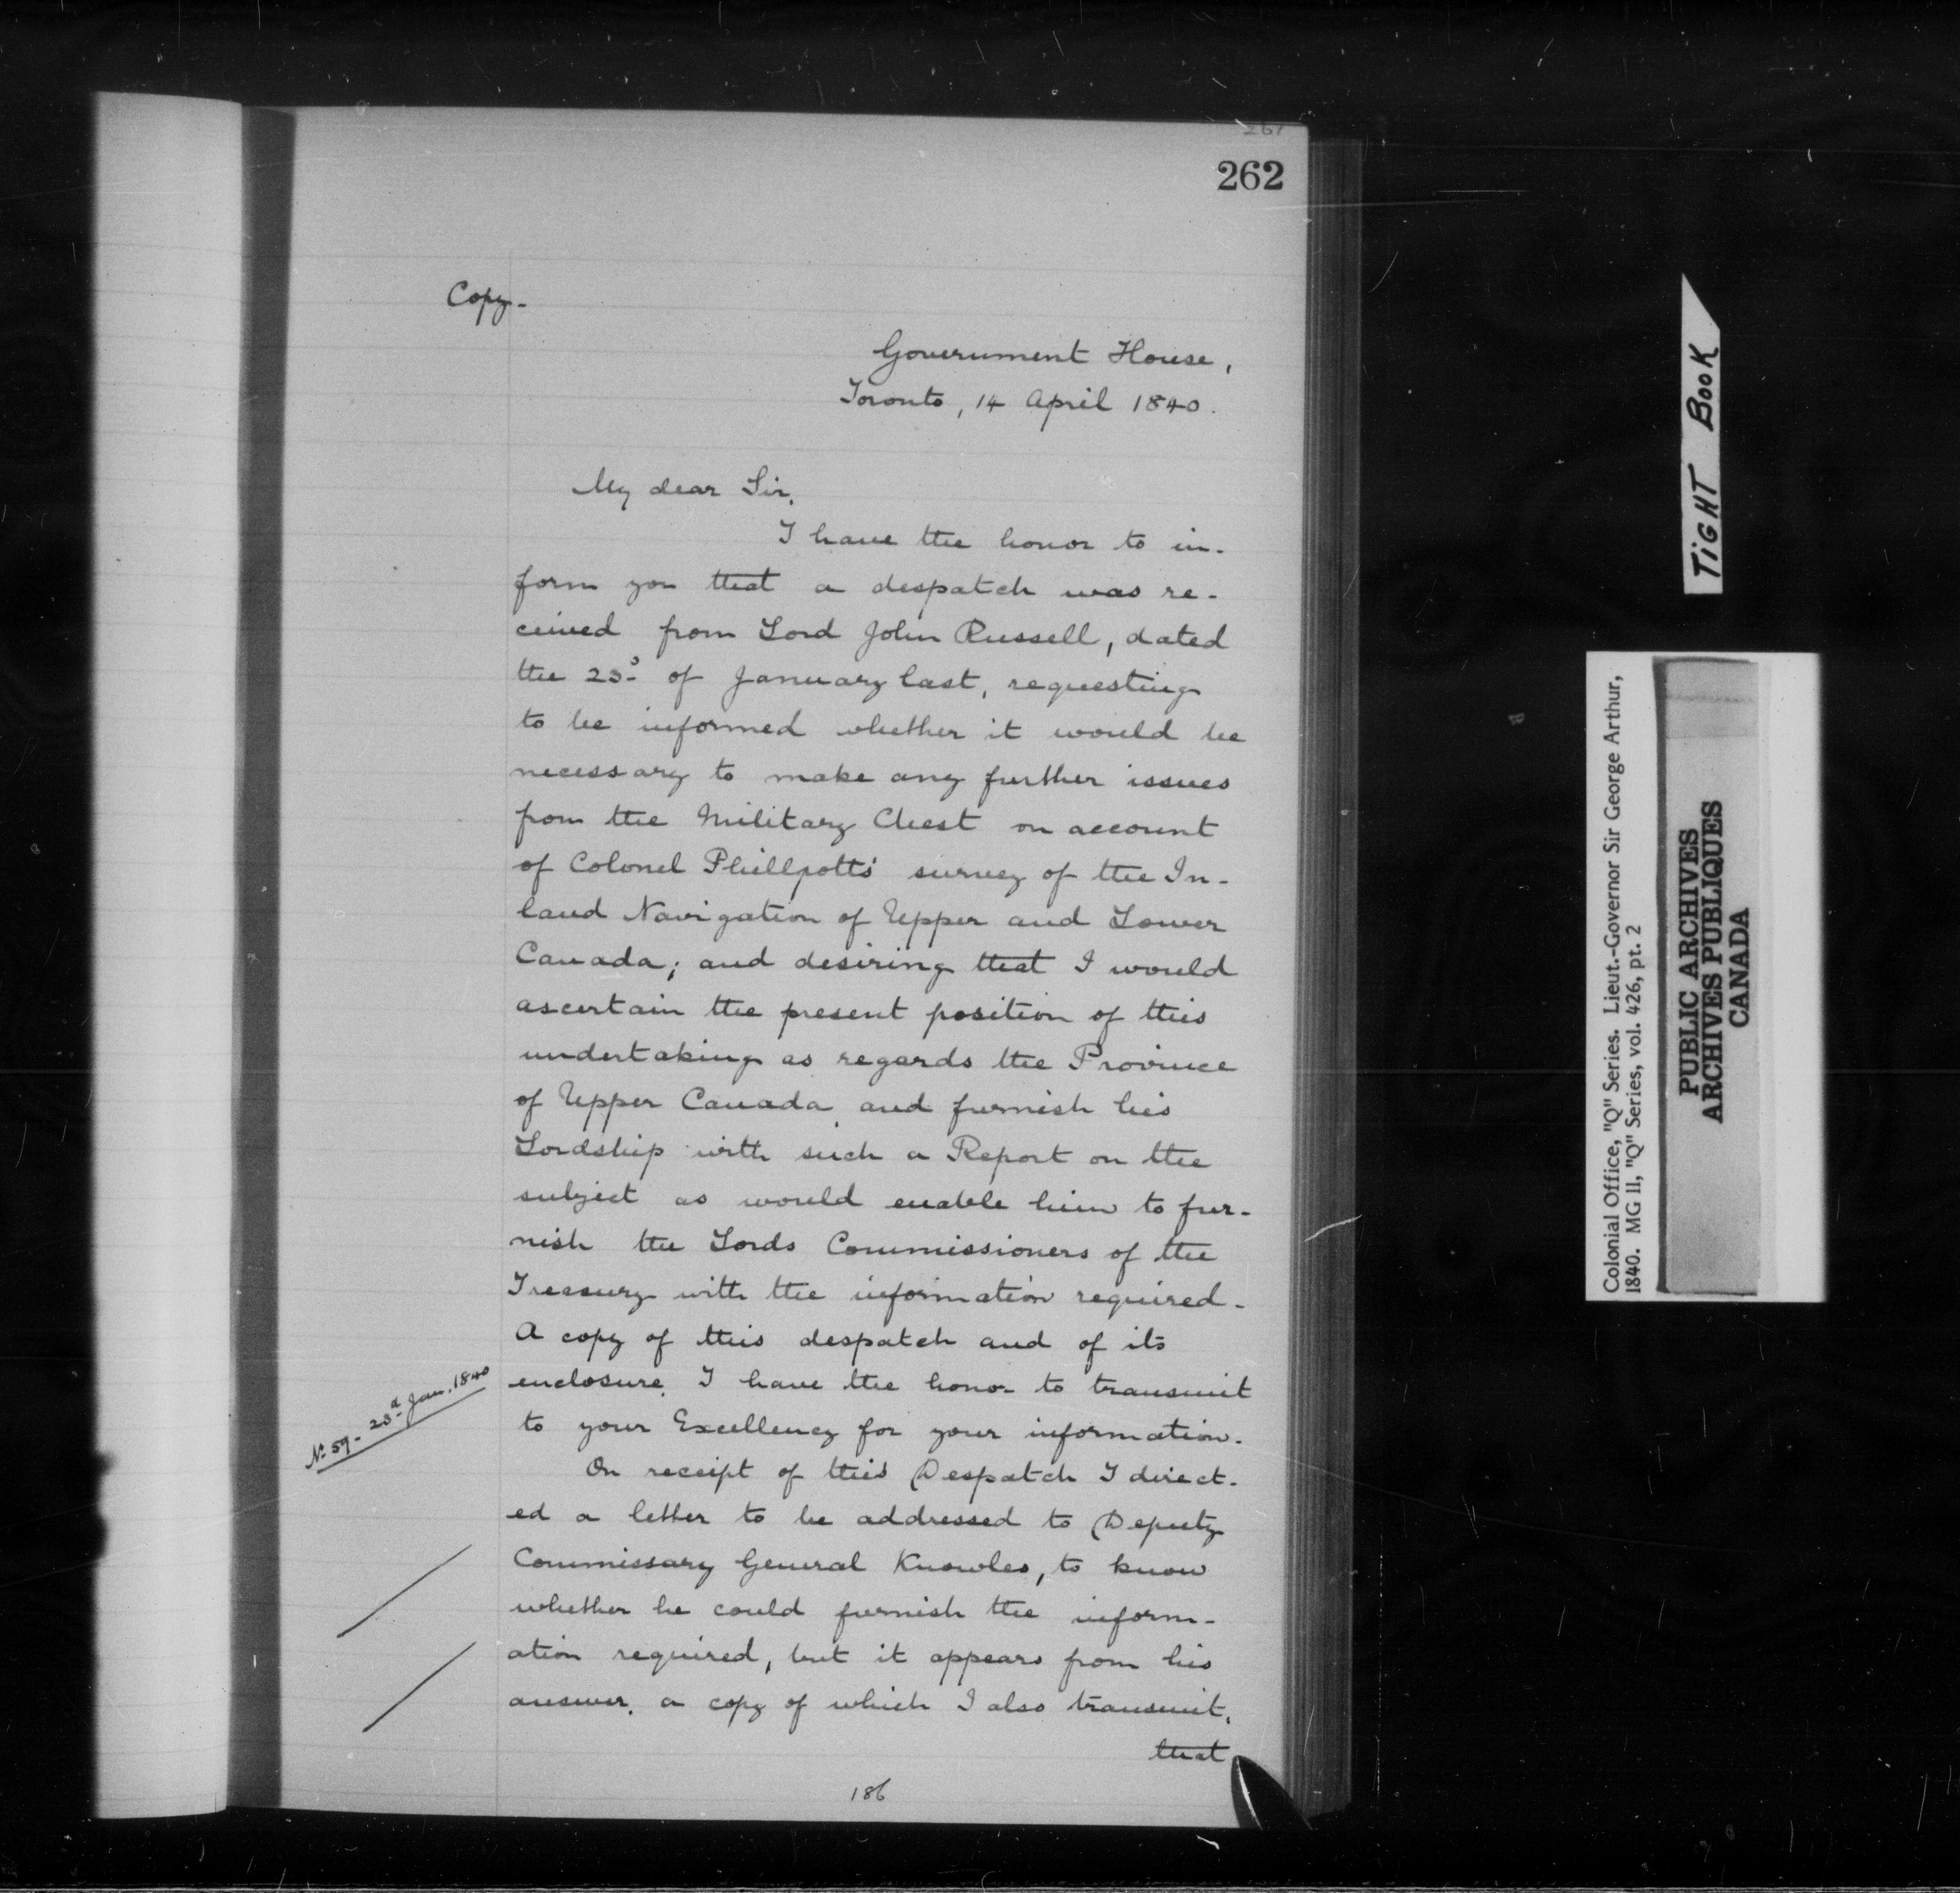 261
262
Copy.
Government House,
Toronto, 14 April 1840.
My dear Sir,
I have the honor to in-
form you that a despatch was re-
ceived from Lord John Russell, dated
the 23d of January last, requesting
to be informed whether it would be
necessary to make any further issues
from the Military Chest on account
of Colonel Phillpotts' survey of the In-
land Navigation of Upper and Lower
Canada; and desiring that I would
ascertain the present position of this
undertaking as regards the Province
of Upper Canada and furnish his
Lordship with such a Report on the
subject as would enable him to fur-
nish the Lords Commissioners of the
Treasury with the information required.
A copy of this despatch and of its
enclosure, I have the honor to transmit
to your Excellency for your information.
No 59 - 23d Jan. 1840
On receipt of this Despatch I direct-
ed a letter to be addressed to Deputy
Commissary General Knowles, to know
whether he could furnish the inform-
ation required, but it appears from his
answer, a copy of which I also transmit,
that
186
TIGHT BOOK
Colonial Office, "Q" Series. Lieut.-Governor Sir George Arthur,
1840. MG 11, "Q" Series, vol. 426, pt. 2
PUBLIC ARCHIVES
ARCHIVES PUBLIQUES
CANADA